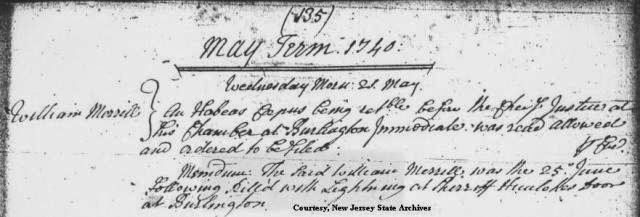 (135)
May Term 1740.
Wednesday Morn: 21. May
William Morrill } An Habeas Corpus being retble before the Cheif Justice at
His Chamber at Burlington Immediate was read allowed
and ordered to be filed.
Memdum: The said William Morrill was the 25th June
following kill'd with Lightning at Sherriff Hunlokes door
at Burlington.
Courtesy, New Jersey State Archives